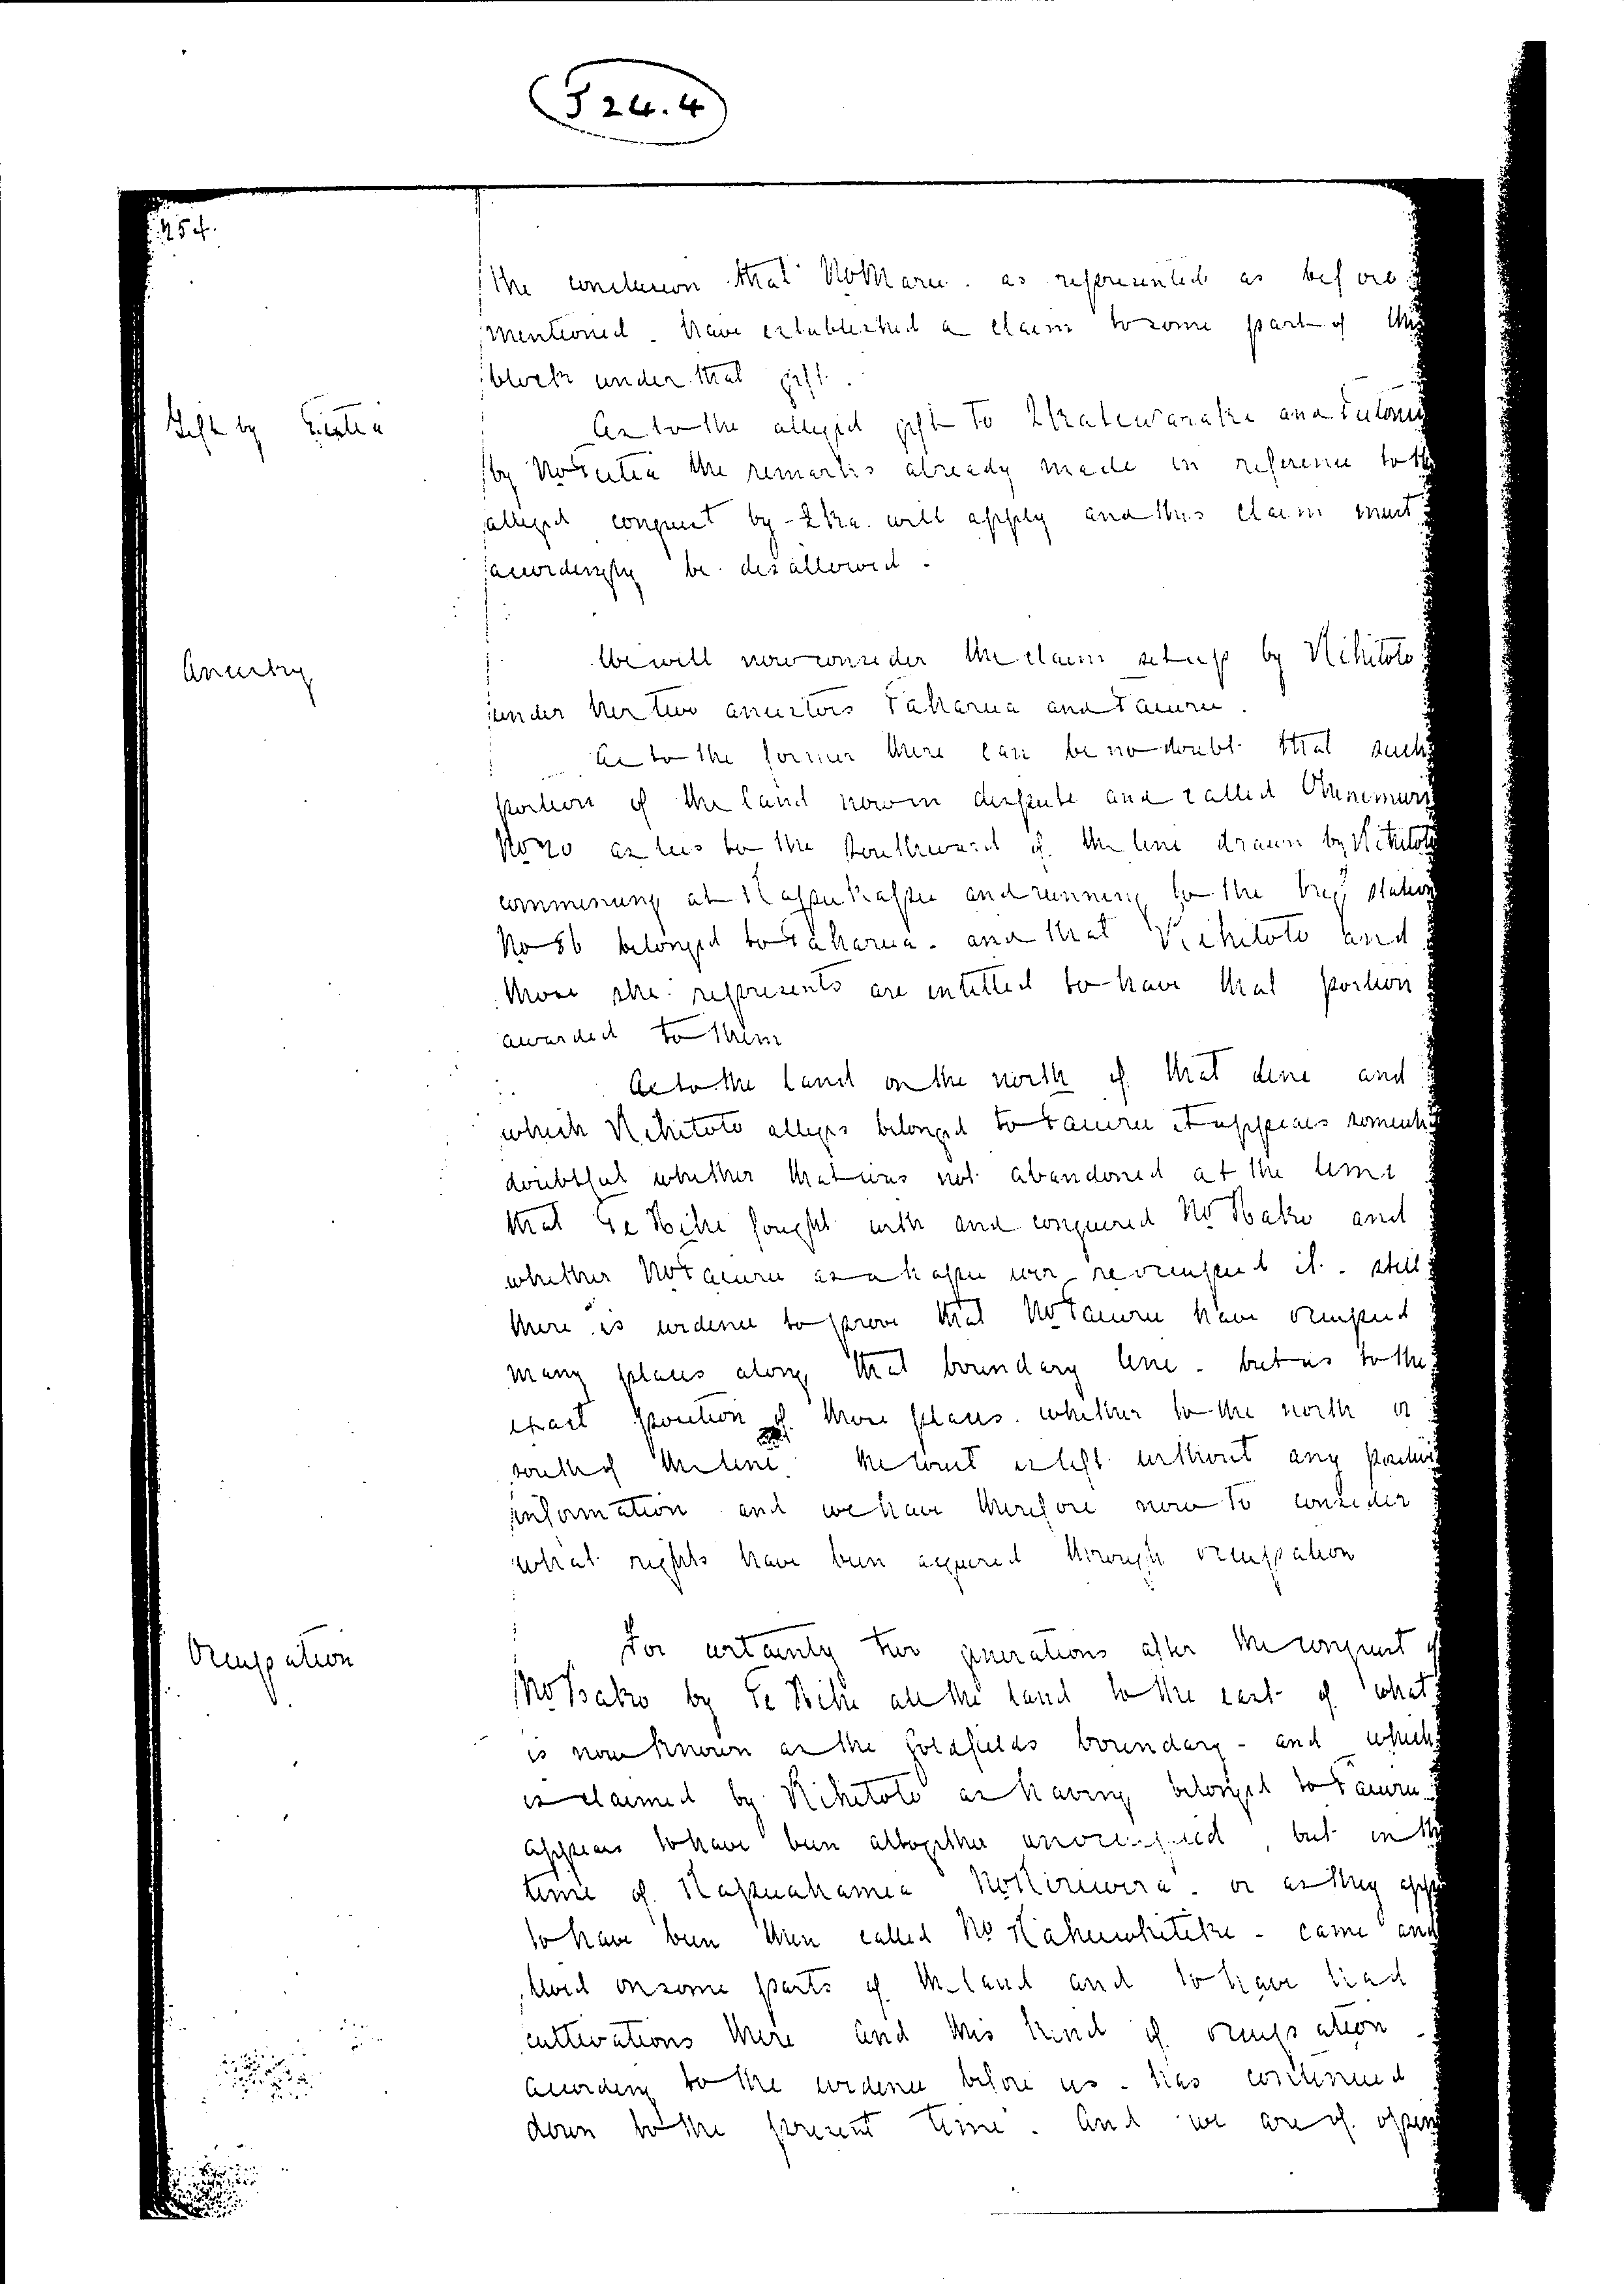 J 24.4
254.
the conclusion that No Maru. as represented as before
mentioned. have established a claim to some part of this
block under that gift.
Gift by Tutea
As to the alleged gift to and
by No Tutea the remarks already made in reference to the
alleged conquest by Ika. will apply and this claim must
accordingly be disallowed.
Ancestry
We will now consider the claim set up by Rihitoto
under her two ancestors Taharua and Tauru.
As to the former there can be no doubt that such
portion of the land now in dispute and called Ohinemuri
No 20 as lies to the southward of the line drawn by Rihitoto
commencing at Kapukapu and running to the Trig station
No 36 belonged to Taharua. and that Rihitoto and
those she represents are intitled to have that portion
awarded to them
As to the land on the north of that line and
which Rihitoto alleges belonged to Tauru it appears somewhat
doubtful whether that was not abandoned at the time
that Te Hihi fought with and conquered No Hako and
whether No Tauru as a hapu ever reoccupied it. still
there is evidence to prove that No Tauru have occupied
many places along that boundary line. but as to the
exact position of those places. whether to the north or
south of the line. the Court is left without any positive
information and we have therefore now to consider
what rights have been acquired through occupation
Occupation
For certainly two generations after the conquest of
No Hako by Te Hihi all the land to the east of what
is now known as the goldfields boundary - and which
is claimed by Rihitoto as having belonged to Tauru
appears to have been altogether unoccupied, but in the
time of No Kiriwera. or as they
to have been then called No Kahuwhitiki - came and
lived on some parts of the land and to have had
cultivations there and this kind of occupation
according to the evidence before us - has continued
down to the present time. And we are of